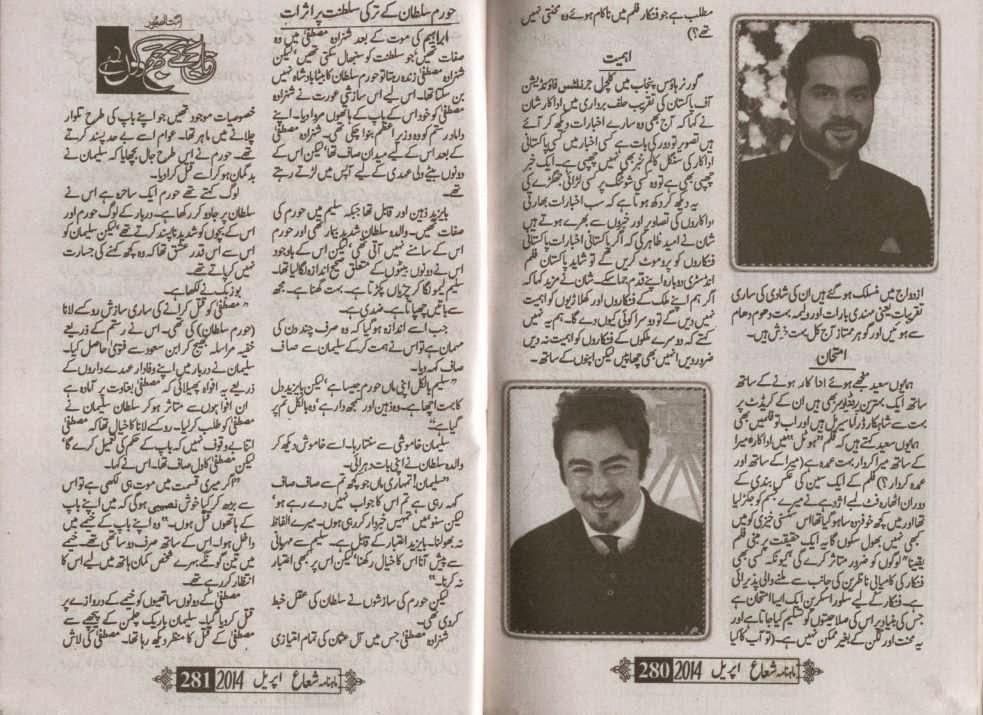 ازدواج میں منسلک ہو گئے ہیں ان کی شادی کی ساری
تقریبات یعنی مہندی بارات اور ولیمہ بہت دھوم دھام
سے ہوئیں اور گوہر ممتاز آج کل بہت خوش ہیں۔
امتحان
ہمایوں سعید منجھے ہوئے اداکار ہونے کے ساتھ
ساتھ ایک بہترین پروڈیوسر بھی ہیں ان کے کریڈٹ پر
بہت سے شاہکار ڈراما سیریل ہیں اور اب تو فلمیں بھی
ہمایوں سعید کہتے ہیں کہ فلم "ہوٹل" میں اداکارہ میرا
کے ساتھ میرا کردار بہت عمدہ ہے (میرا کے ساتھ اور
عمدہ کردار؟) فلم کے ایک سین کی عکس بندی کے
دوران اٹھارہ فٹ لمبے اژدہے نے میرے جسم کو جکڑ لیا
تھا اور میں کچھ خوفزدہ سا ہو گیا تھا اس سنسنی خیزی کو میں
کبھی نہیں بھول سکوں گا یہ ایک حقیقت پر مبنی فلم
یقیناً لوگوں کو ضرور متاثر کرے گی کیونکہ کسی بھی
فنکار کی کامیابی ناظرین کی جانب سے ملنے والی پذیرائی
ہے۔ فنکار کے لیے سلور اسکرین ایک ایسا امتحان ہے
جس کی بنیاد پر اس کی صلاحیتوں کو تسلیم کیا جاتا ہے اور
یہ محنت اور لگن کے بغیر ممکن نہیں ہے۔ (تو آپ کا کیا
مطلب ہے جو فنکار فلم میں ناکام ہوئے وہ محنتی نہیں
تھے؟)
اہمیت
گورنر ہاؤس پنجاب میں کلچرل جرنلٹس فاؤنڈیشن
آف پاکستان کی تقریب حلف برداری میں اداکار شان
نے کہا کہ آج بھی وہ سارے اخبارات دیکھ کر آئے
ہیں تصویر تو دور کی بات ہے کسی اخبار میں کسی پاکستانی
اداکار کی سنگل کالم خبر بھی نہیں چھپی ہے۔ ایک خبر
چھپی بھی ہے تو وہ کسی شوٹنگ پر کسی لڑائی جھگڑے کی
یہ دیکھ کر دکھ ہوتا ہے کہ سب اخبارات بھارتی
اداکاروں کی تصاویر اور خبروں سے بھرے ہوتے ہیں
شان نے امید ظاہر کی کہ اگر پاکستانی اخبارات پاکستانی
فنکاروں کو پروموٹ کریں گے تو شاید پاکستان فلم
انڈسٹری دوبارہ اپنے قدم جما سکے۔ شان نے مزید کہا کہ
اگر ہم اپنے ملک کے فنکاروں اور کھلاڑیوں کو اہمیت
نہیں دیں گے تو دوسرا کوئی کیوں دے گا۔ ہم یہ نہیں
کہتے کہ دوسرے ملکوں کے فنکاروں کو اہمیت نہ دیں
ضرور دیں انہیں بھی چھاپیں لیکن اپنوں کے ساتھ۔
ماہنامہ شعاع اپریل 2014 280
خصوصیات موجود تھیں جو اپنے باپ کی طرح تلوار
چلانے میں ماہر تھا۔ عوام اسے بے حد پسند کرتے
تھے۔ حورم نے اس طرح جال بچھایا کہ سلیمان نے
بدگمان ہو کر اسے قتل کرا دیا۔
لوگ کہتے تھے حورم ایک ساحرہ ہے اس نے
سلطان پر جادو کر رکھا ہے۔ دربار کے لوگ حورم اور
اس کے بچوں کو شدید ناپسند کرتے تھے لیکن سلیمان کو
اس سے اس قدر عشق تھا کہ وہ کچھ کہنے کی جسارت
نہیں کر پاتے تھے۔
نے لکھا ہے۔
"مصطفیٰ کو قتل کرانے کی ساری سازش روکسے لانا
(حورم سلطان) کی تھی۔ اس نے رستم کے ذریعے
خفیہ مراسلہ بھیج کر ابن سعود سے فتویٰ حاصل کیا۔
سلیمان نے دربار میں اپنے وفادار عہدے داروں کے
ذریعے یہ افواہ پھیلائی کہ مصطفیٰ بغاوت پر آمادہ ہے
ان افواہوں سے متاثر ہو کر سلطان سلیمان نے
مصطفیٰ کو طلب کر لیا۔ روکسے لانا کا خیال تھا کہ مصطفیٰ
اتنا بے وقوف نہیں کہ باپ کے حکم کی تعمیل کرے گا
لیکن مصطفیٰ کا دل صاف تھا۔ اس نے کہا۔
"اگر میری قسمت میں موت ہی لکھی ہے تو اس
سے بڑھ کر کیا خوش نصیبی ہو گی کہ میں اپنے باپ
کے ہاتھوں قتل ہوں۔" وہ اپنے باپ کے خیمے میں
داخل ہوا۔ اس کے ساتھ صرف دو ساتھی تھے خیمے
میں تین گونگے بہرے شخص کمان ہاتھ میں لیے اس کا
انتظار کر رہے تھے۔
مصطفیٰ کے دونوں ساتھیوں کو خیمے کے دروازے پر
قتل کر دیا گیا۔ سلیمان باریک چلمن کے پیچھے سے
مصطفیٰ کے قتل کا منظر دیکھ رہا تھا۔ مصطفیٰ کی لاش
حورم سلطان کے ترکی سلطنت پر اثرات
ابراہیم کی موت کے بعد شہزادہ مصطفیٰ میں وہ
صفات تھیں جو سلطنت کو سنبھال سکتی تھیں لیکن
شہزادہ مصطفیٰ زندہ رہتا تو حورم سلطان کا بیٹا بادشاہ نہیں
بن سکتا تھا۔ اس لیے اس سازشی عورت نے شہزادہ
مصطفیٰ کو خود اس کے باپ کے ہاتھوں مروا دیا۔ اپنے
داماد رستم کو وہ وزیر اعظم بنوا چکی تھی۔ شہزادہ مصطفیٰ
کے بعد اس کے لیے میدان صاف تھا لیکن اس کے
دونوں بیٹے ولی عہدی کے لیے آپس میں لڑتے رہتے
تھے۔
بایزید ذہین اور قابل تھا جبکہ سلیم میں حورم کی
صفات تھیں۔ والدہ سلطان شدید بیمار تھی اور حورم
اس کے سامنے نہیں آتی تھی لیکن اس کے باوجود
اس نے دونوں بیٹوں کے متعلق صحیح اندازہ لگا لیا تھا۔
سلیم لیمو لگا کر چڑیاں پکڑتا ہے۔ بہت گھنا ہے۔ مجھ
سے باتیں چھپاتا ہے۔ ضدی ہے۔
جب اسے اندازہ ہو گیا کہ وہ صرف چند دن کی
مہمان ہے تو اس نے ہمت کر کے سلیمان سے صاف
کہہ دیا۔
"سلیم بالکل اپنی ماں حورم جیسا ہے لیکن بایزید دل
کا بہت اچھا ہے۔ وہ ذہین اور سمجھ دار ہے وہ بالکل تم پر
گیا ہے"
سلیمان خاموشی سے سنتا رہا۔ اسے خاموش دیکھ کر
والدہ سلطان نے اپنی بات دہرائی۔
"سلیمان! تمہاری ماں جو کچھ تم سے صاف صاف
کہہ رہی ہے تم اس کا جواب نہیں دے رہے ہو
لیکن سنو میں تمہیں خبردار کر رہی ہوں۔ میرے الفاظ
نہ بھولنا۔ بایزید اعتبار کے قابل ہے۔ سلیم سے مہربانی
سے پیش آنا اس کا خیال رکھنا لیکن اس پر بھی اعتبار
نہ کرنا۔"
لیکن حورم کی سازشوں نے سلطان کی عقل خبط
کر دی تھی۔
شہزادہ مصطفیٰ جس میں آل عثمان کی تمام امتیازی
ماہنامہ شعاع اپریل 2014 281